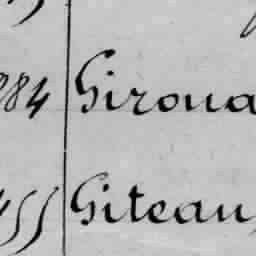 284 Giroua
455 Giteau